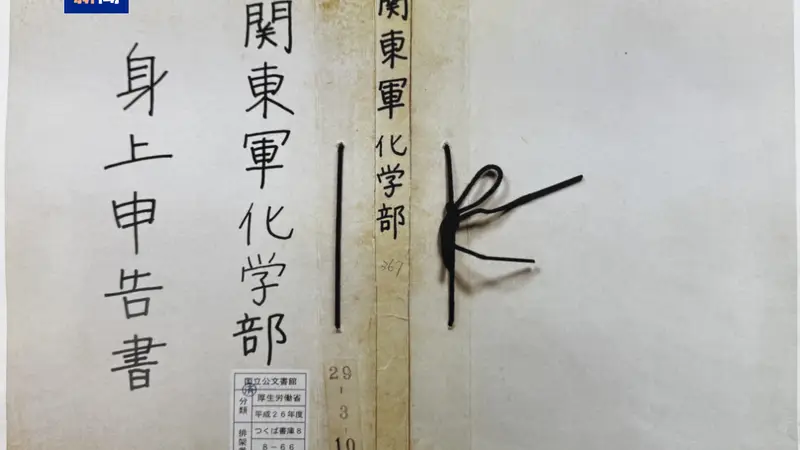 新聞
関東軍化学部
身上申告書
関東軍化学部
367
29
-
3
-
10
国立公文書館
分類
厚生労働省
平成26年度
つくば書庫8
8-66